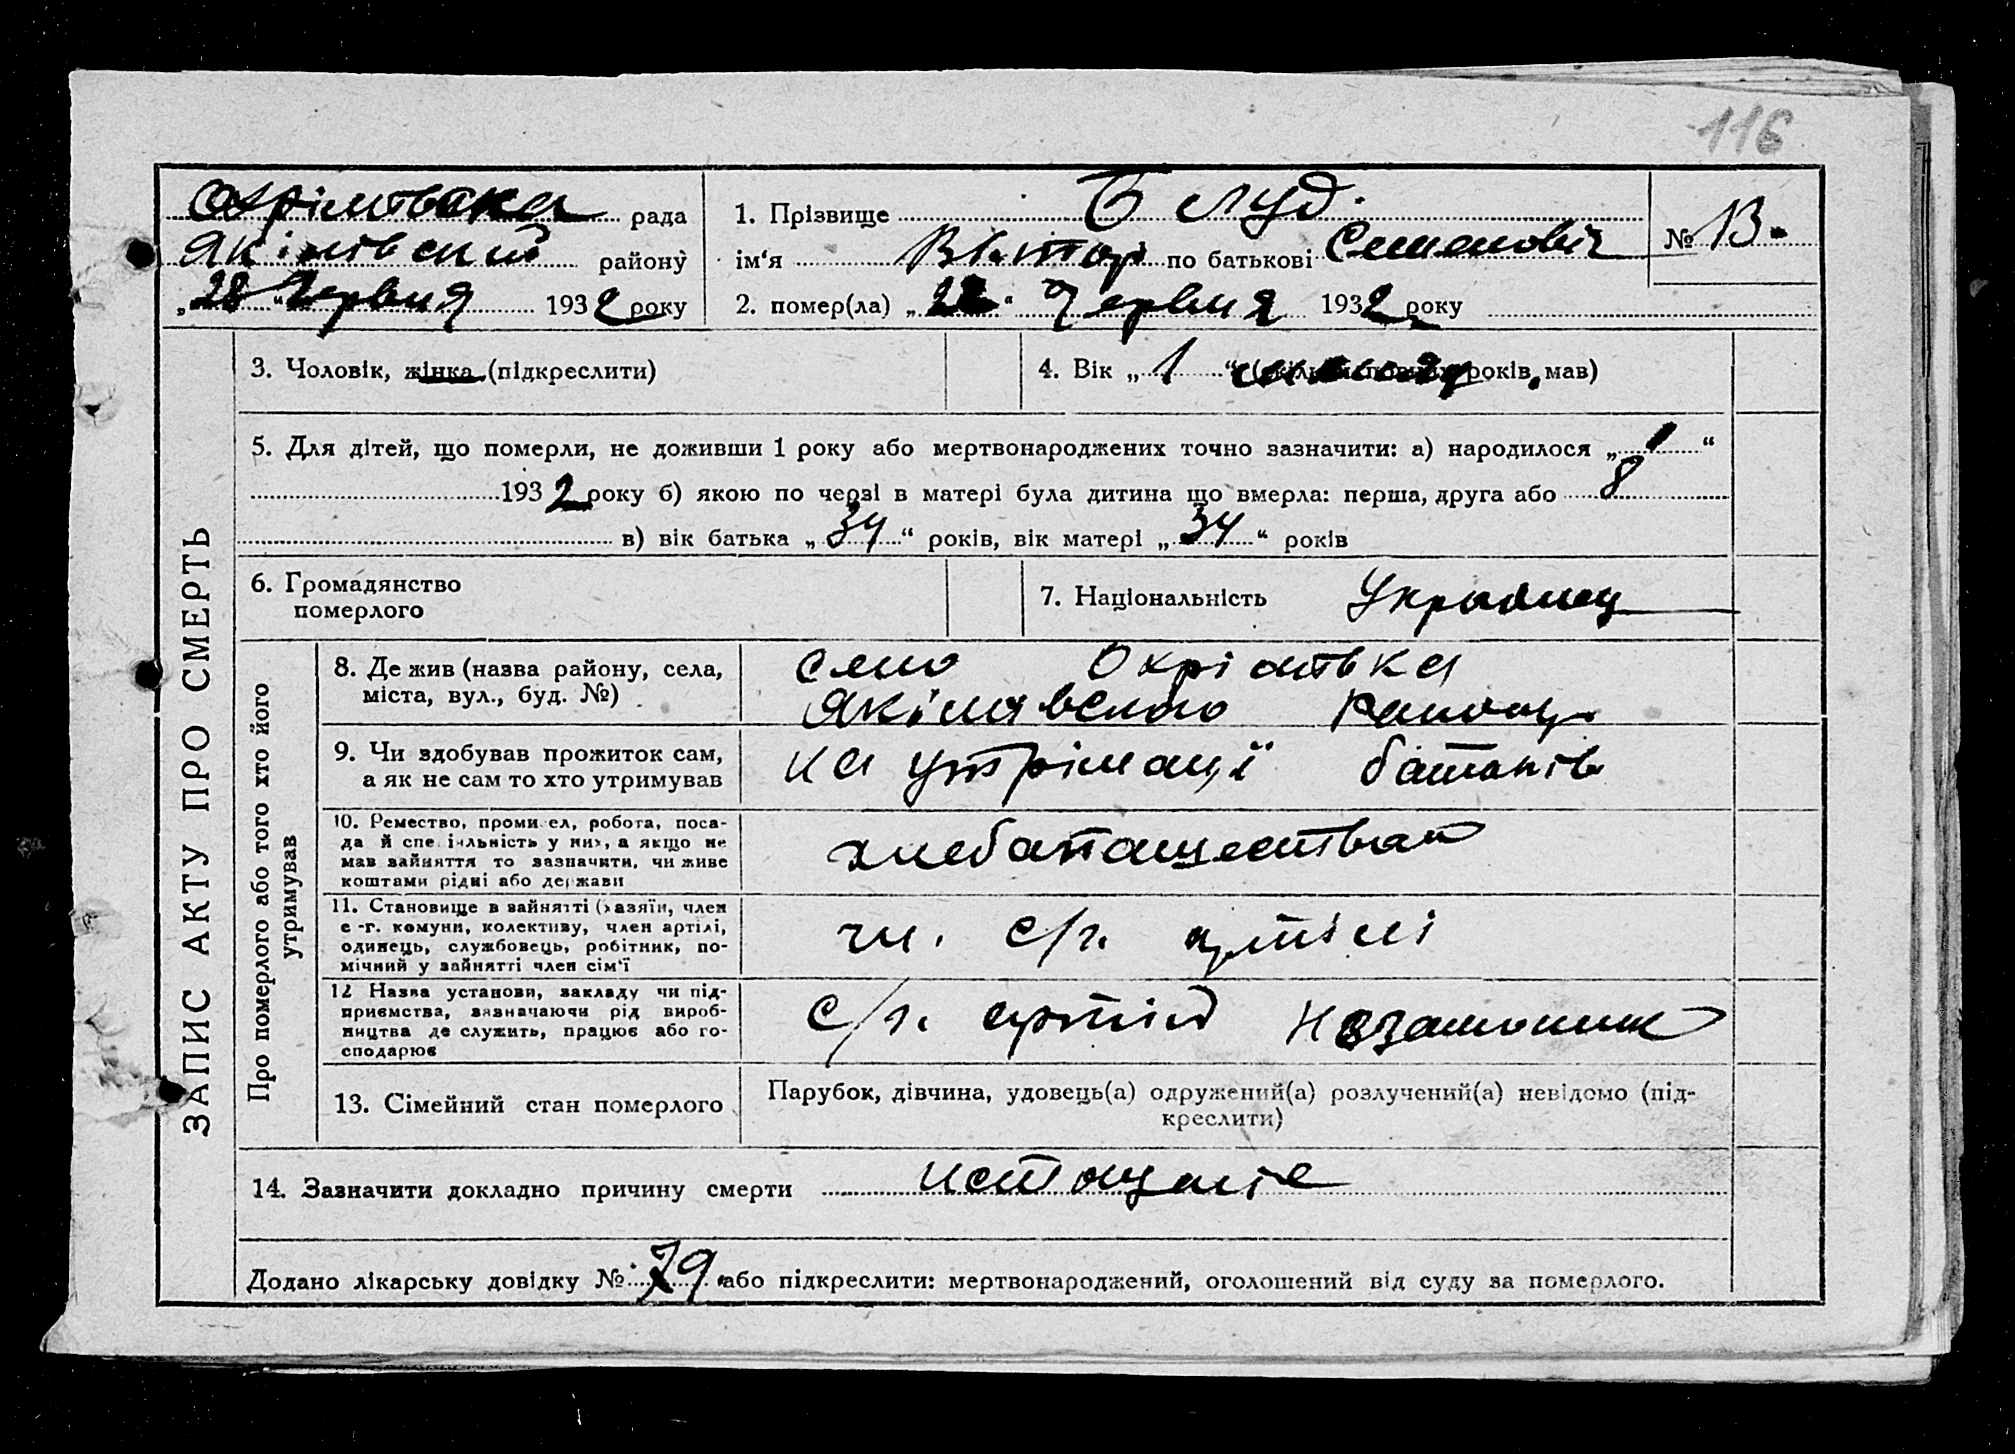 116
Охрімовська рада
Якімівский району
„28“ Червня 1932 року
1. Прізвище Блуд.
ім‘я Віктор по батькові Семенович
№ 13.
2. помер(ла) „28“ Червня 1932 року
3. Чоловік, жінка (підкреслити)
4. Вік „1“ (скільки повних років мав)
5. Для дітей, що померли, не доживши 1 року або мертвонароджених точно зазначити: а) народилося „1“
1932 року б) якою по черзі в матері була дитина що вмерла: перша, друга або 8
в) вік батька „34“ років, вік матері „34“ років
6. Громадянство
померлого
7. Національність
ЗАПИС АКТУ ПРО СМЕРТЬ
Про померлого або того хто його
утримував
8. Де жив (назва району, села,
міста, вул., буд. №)
село Охрімовка
Якімовского району
9. Чи здобував прожиток сам,
а як не сам то хто утримував
на утрімації батьків
10. Ремество, промисел, робота, поса-
да й спеціяльність у них, а якщо не
мав зайняття то зазначити, чи живе
коштами рідні або держави
11. Становище в зайнятті (хазяїн, член
с.-г. комуни, колективу, член артілі,
одинець, службовець, робітник, по-
мічний у зайнятті член сім‘ї
чл. с/г. артілі
12 Назва установи, закладу чи під-
приємства, зазначаючи рід вироб-
ництва де служить, працює або го-
сподарює
с/г. артіль Незаможник
13. Сімейний стан померлого
Парубок, дівчина, удовець(а) одружений(а) розлучений(а) невідомо (під-
креслити)
14. Зазначити докладно причину смерти истощеніе
Додано лікарську довідку № 79 або підкреслити: мертвонароджений, оголошений від суду за померлого.